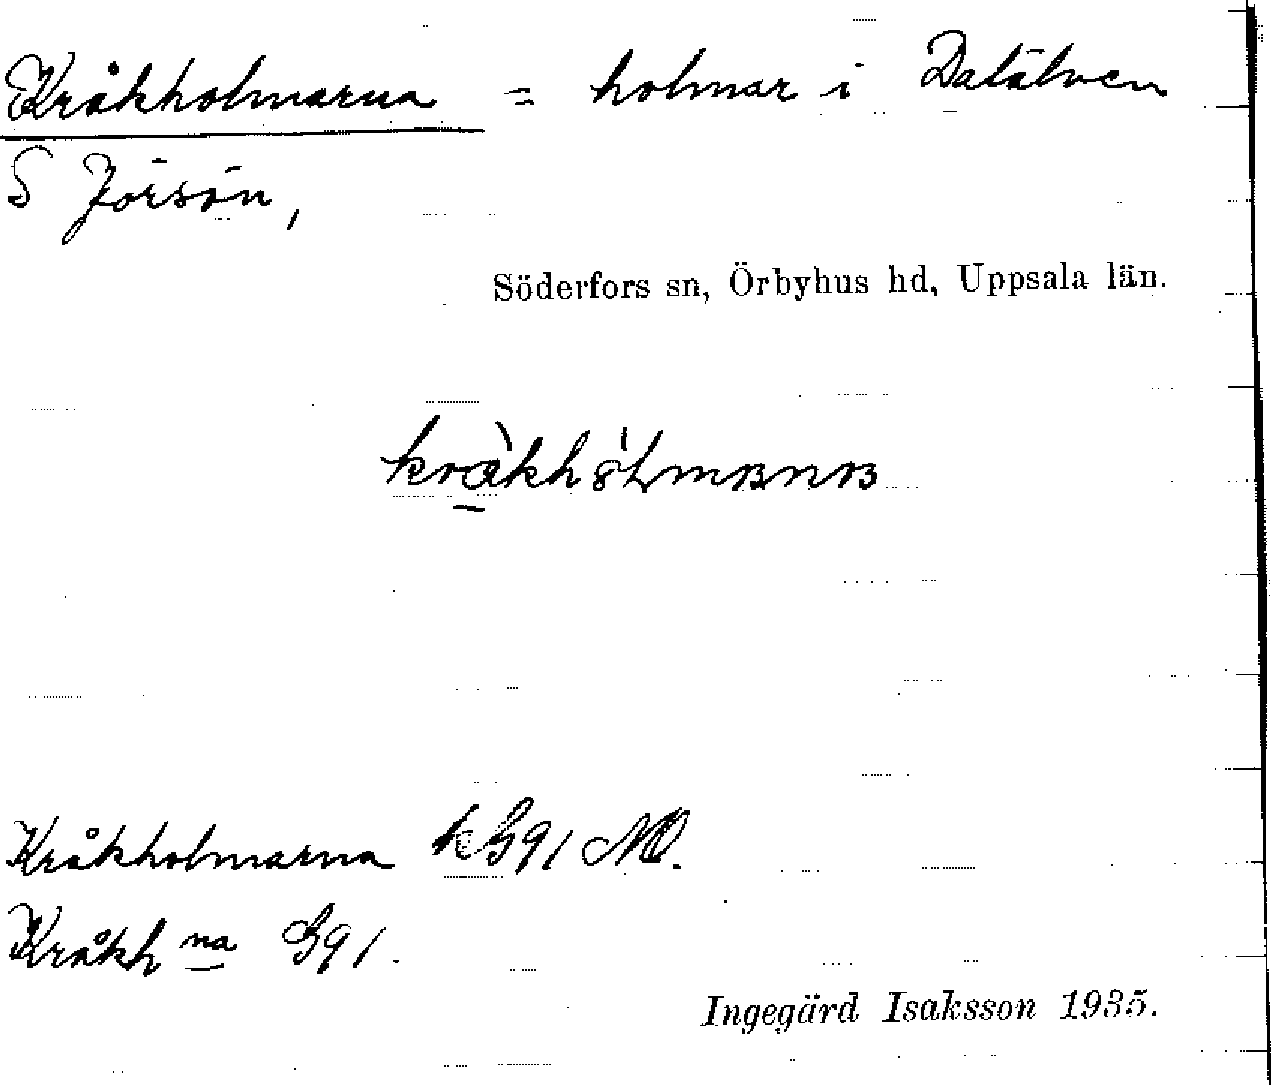 Kråkholmarna = holmar i Dalälven
S Jörsön,
Söderfors sn, Örbyhus hd, Uppsala län.
Kråkholmarna k G91 NO.
Kråkh na G91.
Ingegärd Isaksson 1935.